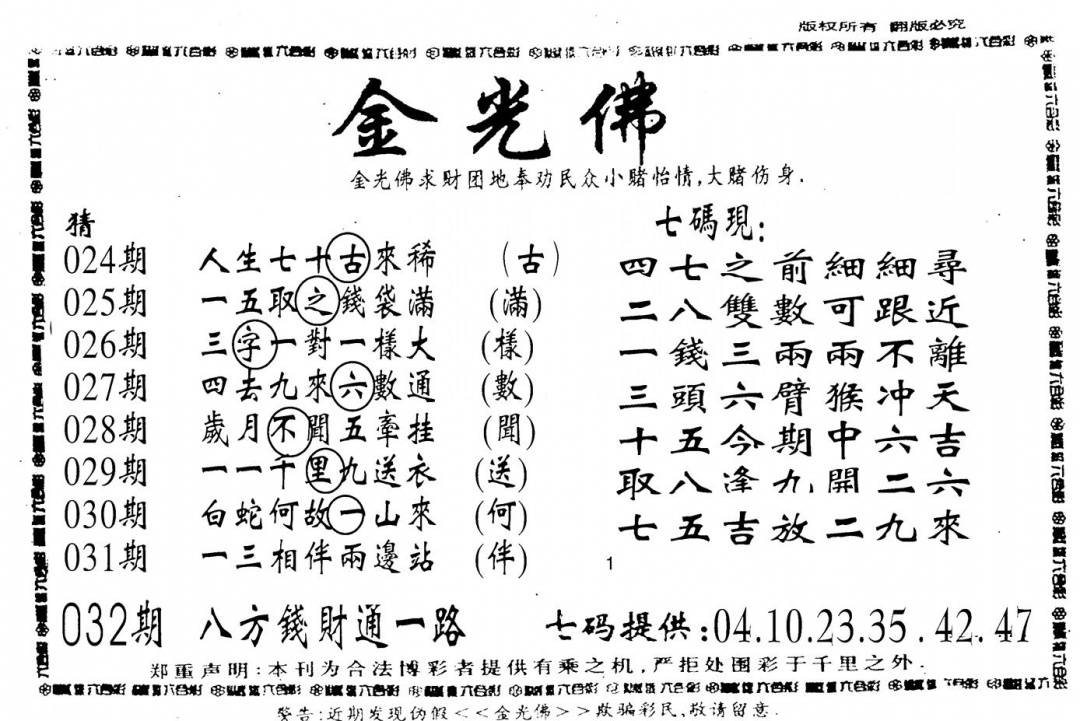 版权所有 翻版必究
金光佛
金光佛求财团地奉劝民众小赌怡情,大赌伤身.
猜
024期 人生七十古來稀 (古)
025期 一五取之錢袋滿 (滿)
026期 三字一對一樣大 (樣)
027期 四去九來六數通 (數)
028期 歲月不聞五牽挂 (聞)
029期 一一千里九送衣 (送)
030期 白蛇何故一山來 (何)
031期 一三相伴兩邊站 (伴)
七碼現:
四七之前細細尋
二八雙數可跟近
一錢三兩兩不離
三頭六臂猴冲天
十五今期中六吉
取八逢九開二六
七五吉放二九來
1
032期 八方錢財通一路 七码提供:04.10.23.35.42.47
郑重声明:本刊为合法博彩者提供有乘之机,严拒处围彩于千里之外.
警告:近期发现伪假<<金光佛>>欺骗彩民,敬请留意.